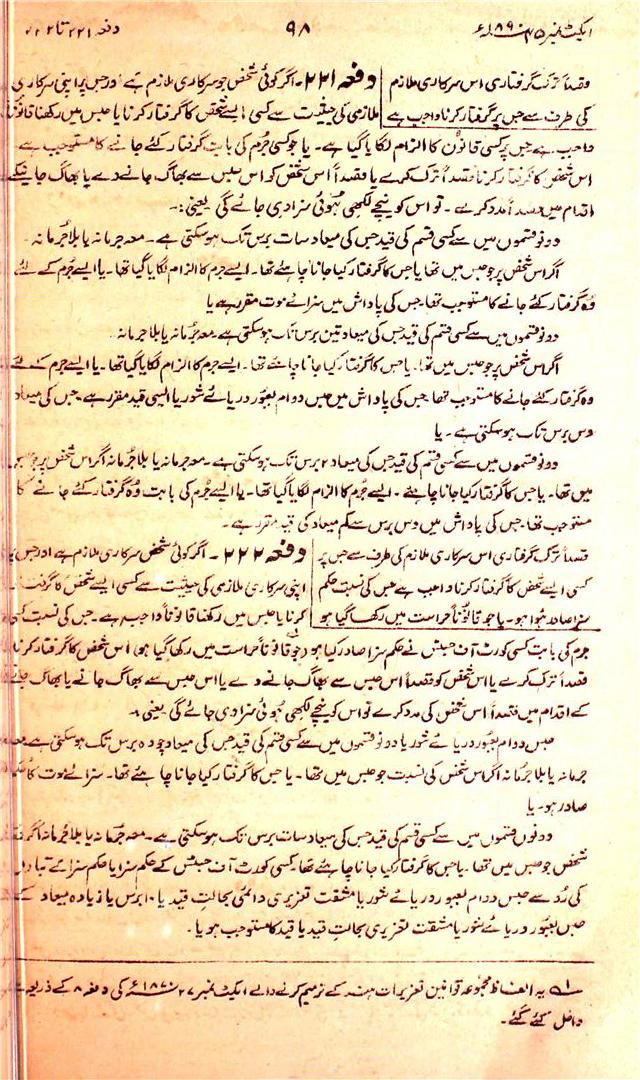 ایکٹ نمبر ۴۵ ۱۸۶۰ء ۹۸ دفعہ ۲۲۱ تا ۲۲۲
قصداً ترک گرفتاری اس سرکاری ملازم
کی طرف سے جس پر گرفتار کرنا واجب ہے
دفعہ ۲۲۱۔ اگر کوئی شخص جو سرکاری ملازم ہے اور جس پر اپنی سرکاری
ملازمی کی حیثیت سے کسی ایسے شخص کا گرفتار کرنا یا حبس میں رکھنا قانوناً
واجب ہے جس پر کسی قانون کا الزام لگایا گیا ہے۔ یا جو کسی جرم کی بابت گرفتار کئے جانے کا مستوجب ہے
اس شخص کا گرفتار کرنا قصداً ترک کرے یا قصداً اس شخص کو اس حبس سے بھاگ جانے دے یا بھاگ جانیکے
اقدام میں قصداً مدد کرے۔ تو اس کو نیچے لکھی ہوئی سزا دی جائے گی یعنی:۔
دونو قسموں میں سے کسی قسم کی قید جس کی میعاد سات برس تک ہو سکتی ہے۔ معہ جرمانہ یا بلا جرمانہ۔
اگر اس شخص پر جو حبس میں تھا یا جس کا گرفتار کیا جانا چاہئے تھا۔ ایسے جرم کا الزام لگایا گیا تھا۔ یا ایسے جرم کے لئے
وہ گرفتار کئے جانے کا مستوجب تھا۔ جس کی پاداش میں سزائے موت مقرر ہے یا
دونو قسموں میں سے کسی قسم کی قید جس کی میعاد تین برس تک ہو سکتی ہے۔ معہ جرمانہ یا بلا جرمانہ
اگر اس شخص پر جو حبس میں تھا۔ یا جس کا گرفتار کیا جانا چاہئے تھا۔ ایسے جرم کا الزام لگایا گیا تھا۔ یا ایسے جرم کے لئے
وہ گرفتار کئے جانے کا مستوجب تھا جس کی پاداش میں حبس دوام بعبور دریائے شور یا ایسی قید مقرر ہے جس کی میعاد
دس برس تک ہو سکتی ہے۔ یا
دونو قسموں میں سے کسی قسم کی قید جس کی میعاد ۲ برس تک ہو سکتی ہے۔ معہ جرمانہ یا بلا جرمانہ اگر اس شخص پر جو حبس
میں تھا۔ یا جس کا گرفتار کیا جانا چاہئے۔ ایسے جرم کا الزام لگایا گیا تھا۔ یا ایسے جرم کی بابت وہ گرفتار کئے جانے کا
مستوجب تھا۔ جس کی پاداش میں دس برس سے کم میعاد کی قید مقرر ہے۔
قصداً ترک گرفتاری اس سرکاری ملازم کی طرف سے جس پر
کسی ایسے شخص کا گرفتار کرنا واجب ہے جس کی نسبت حکم
سزا صادر ہوا ہو۔ یا جو قانوناً حراست میں رکھا گیا ہو
دفعہ ۲۲۲۔ اگر کوئی شخص سرکاری ملازم ہے اور جس پر
اپنی سرکاری ملازمی کی حیثیت سے کسی ایسے شخص کا گرفتار
کرنا یا حبس میں رکھنا قانوناً واجب ہے۔ جس کی نسبت کسی
جرم کی بابت کسی کورٹ آف جسٹس نے حکم سزا صادر کیا ہو (یا جو قانوناً حراست میں رکھا گیا ہو) اس شخص کا گرفتار کرنا
قصداً ترک کرے یا اس شخص کو قصداً اس حبس سے بھاگ جانے دے یا اس حبس سے بھاگ جانے یا بھاگ جانے
کے اقدام میں قصداً اس شخص کی مدد کرے تو اس کو نیچے لکھی ہوئی سزا دی جائے گی یعنی۔
حبس دوام بعبور دریائے شور یا دونو قسموں میں سے کسی قسم کی قید جس کی میعاد چودہ برس تک ہو سکتی ہے معہ
جرمانہ یا بلا جرمانہ اگر اس شخص کی نسبت جو حبس میں تھا۔ یا جس کا گرفتار کیا جانا چاہئے تھا۔ سزائے موت کا حکم
صادر ہو۔ یا
دونوں قسموں میں سے کسی قسم کی قید جس کی میعاد سات برس تک ہو سکتی ہے۔ معہ جرمانہ یا بلا جرمانہ اگر
شخص جو حبس میں تھا۔ یا جس کا گرفتار کیا جانا چاہئے تھا کسی کورٹ آف جسٹس کے حکم سزا یا حکم سزائے
کی رُو سے حبس دوام بعبور دریائے شور یا مشقت تعزیری دائمی بحالتِ قید یا ۱۰ برس یا زیادہ میعاد کے
حبس بعبور دریائے شور یا مشقت تعزیری بحالتِ قید یا قید کا مستوجب ہو یا۔
۱؎ یہ الفاظ مجموعہ قوانین تعزیرات ہند کے ترمیم کرنے والے ایکٹ نمبر ۲۷ ۱۸۷۰ء کی دفعہ ۸ کے ذریعے
داخل کئے گئے۔